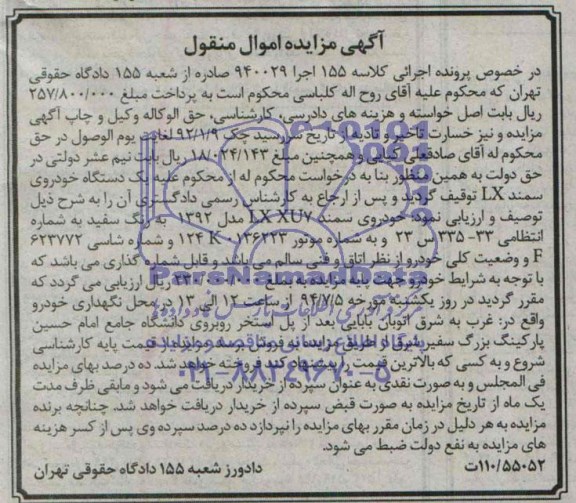 آگهی مزایده اموال منقول
در خصوص پرونده اجرائی کلاسه ۱۵۵ اجرا ۹۴۰۰۲۹ صادره از شعبه ۱۵۵ دادگاه حقوقی
تهران که محکوم علیه آقای روح اله کلباسی محکوم است به پرداخت مبلغ ۲۵۷/۸۰۰/۰۰۰
ریال بابت اصل خواسته و هزینه های دادرسی، کارشناسی، حق الوکاله وکیل و چاپ آگهی
مزایده و نیز خسارت تاخیر و تادیه از تاریخ سررسید چک ۹۲/۱/۹ لغایت یوم الوصول در حق
محکوم له آقای صادقعلی کیایی و همچنین مبلغ ۱۸/۰۲۴/۱۴۳ ریال بابت نیم عشر دولتی در
حق دولت به همین منظور بنا به درخواست محکوم له از محکوم علیه یک دستگاه خودروی
سمند LX توقیف گردید و پس از ارجاع به کارشناس رسمی دادگستری آن را به شرح ذیل
توصیف و ارزیابی نمود: خودروی سمند LX XU۷ مدل ۱۳۹۲ به رنگ سفید به شماره
انتظامی ۳۳- ۳۳۵ س ۲۳ و به شماره موتور ۱۳۶۲۲۳ ۱۲۴K و شماره شاسی ۶۲۳۷۷۲
F و وضعیت کلی خودرو از نظر اتاق و فنی سالم می باشد و قابل شماره گذاری می باشد که
با توجه به شرایط خودرو جهت پایه مزایده به مبلغ ریال ارزیابی می گردد که
مقرر گردید در روز یکشنبه مورخه ۹۴/۷/۵ از ساعت ۱۲ الی ۱۳ در محل نگهداری خودرو
واقع در: غرب به شرق اتوبان بابایی بعد از پل استخر روبروی دانشگاه جامع امام حسین
پارکینگ بزرگ سفیر شرق از طریق مزایده به فروش برسد و مزایده از قیمت پایه کارشناسی
شروع و به کسی که بالاترین قیمت را پیشنهاد کند فروخته خواهد شد. ده درصد بهای مزایده
فی المجلس و به صورت نقدی به عنوان سپرده از خریدار دریافت می شود و مابقی ظرف مدت
یک ماه از تاریخ مزایده به صورت قبض سپرده از خریدار دریافت خواهد شد. چنانچه برنده
مزایده به هر دلیل در زمان مقرر بهای مزایده را نپردازد ده درصد سپرده وی پس از کسر هزینه
های مزایده به نفع دولت ضبط می شود.
۱۱۰/۵۵۰۵۲ت دادورز شعبه ۱۵۵ دادگاه حقوقی تهران
ParsNamadData
۰۲۱-۸۸۳۴۹۶۷۰-۵